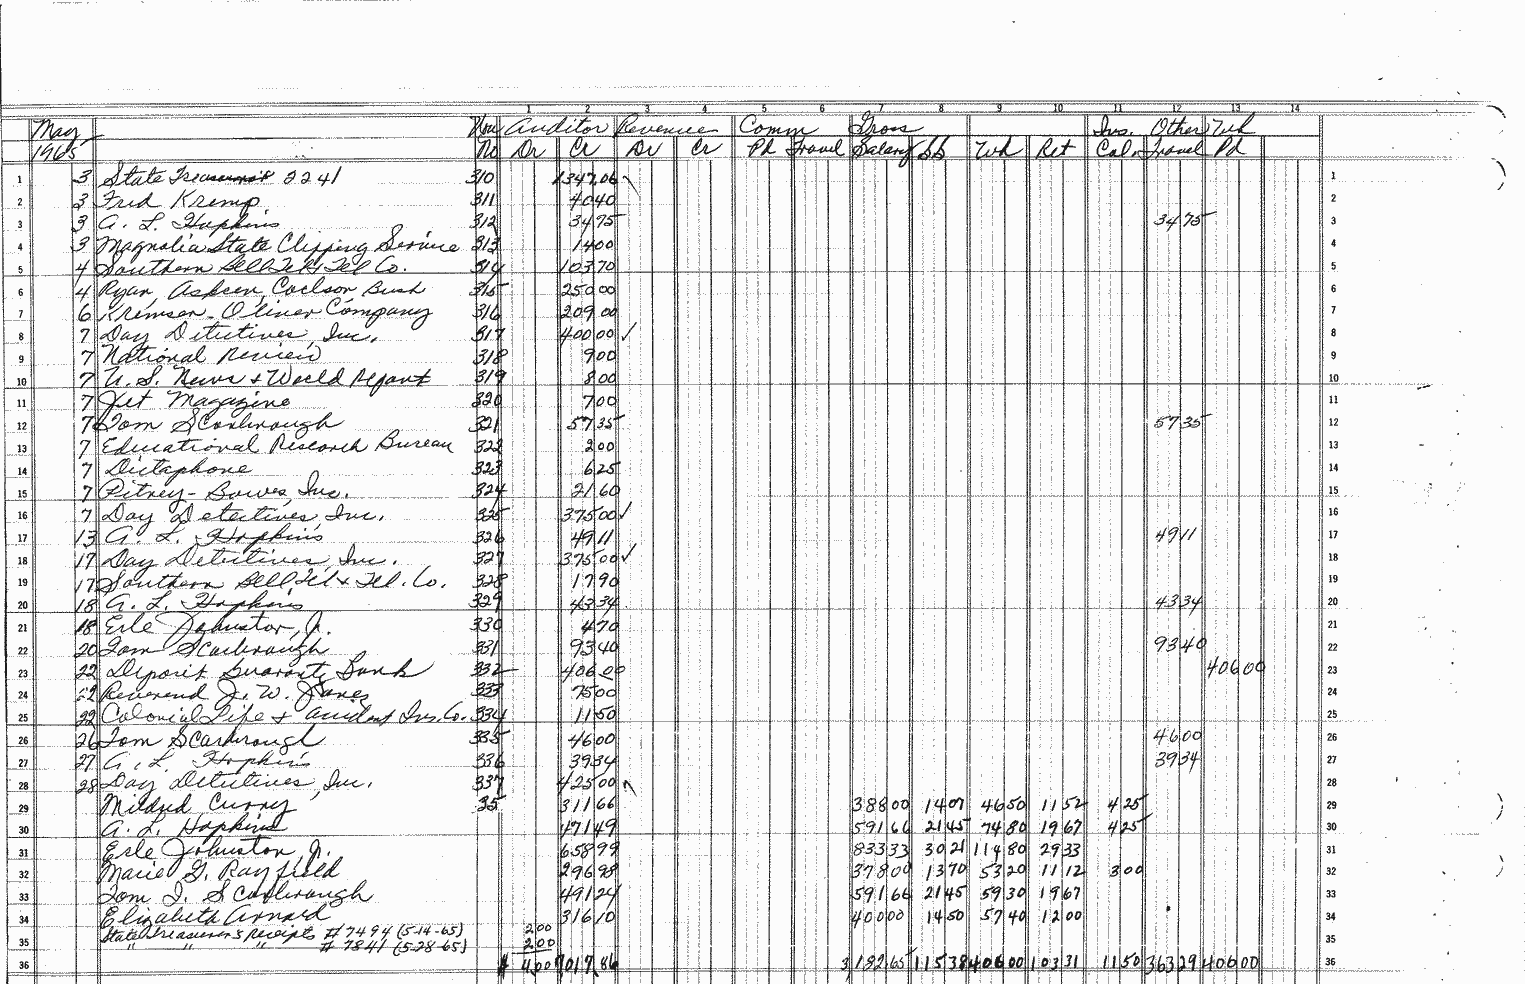 1 2 3 4 5 6 7 8 9 10 11 12 13 14
May Auditor Revenue Comm Gross Ins. Other Wh
1965 No Dr Cr Dr Cr Pd Travel Salary SS Wh Ret Col. Travel Pd
1 3 State Treasurer 2241 310 1347.06 1
2 3 Fred Kremp 311 40 40 2
3 3 A. L. Hopkins 312 34 75 34 75 3
4 3 Magnolia State Clipping Service 313 14 00 4
5 4 Southern Bell Tel & Tel Co. 314 103 70 5
6 4 Ryan, Coclson Bush 315 250 00 6
7 6 Kremser-Oliver Company 316 209 00 7
8 7 Day Detectives, Inc. 317 400 00 ✓ 8
9 7 National Review 318 9 00 9
10 7 U. S. News & World Report 319 8 00 10
11 7 Jet Magazine 320 7 00 11
12 7 Tom Scarbrough 321 57 35 57 35 12
13 7 Educational Research Bureau 322 2 00 13
14 7 Dictaphone 323 6 25 14
15 7 Pitney-Bowes, Inc. 324 21 60 15
16 7 Day Detectives, Inc. 325 375 00 ✓ 16
17 13 A. L. Hopkins 326 49 11 49 11 17
18 17 Day Detectives, Inc. 327 375 00 ✓ 18
19 17 Southern Bell Tel & Tel. Co. 328 17 90 19
20 18 A. L. Hopkins 329 43 34 43 34 20
21 18 Erle Johnston, Jr. 330 4 70 21
22 20 Tom Scarbrough 331 93 40 93 40 22
23 22 Deposit Guaranty Bank 332 406 00 406 00 23
24 22 Reverend J. W. Jones 333 75 00 24
25 22 Colonial Life & Accident Ins. Co. 334 11 50 25
26 26 Tom Scarbrough 335 46 00 46 00 26
27 27 A. L. Hopkins 336 39 34 39 34 27
28 28 Day Detectives, Inc. 337 425 00 28
29 Mildred Curry 35 311 66 388 00 14 07 46 50 11 52 4 25 29
30 A. L. Hopkins 471 49 591 66 21 45 74 80 19 67 4 25 30
31 Erle Johnston, Jr. 658 99 833 33 30 21 114 80 29 33 31
32 Marie G. Rayfield 296 98 378 00 13 70 53 20 11 12 3 00 32
33 Tom T. Scarbrough 491 24 591 66 21 45 59 30 19 67 33
34 Elizabeth Arnold 316 10 400 00 14 50 57 40 12 00 34
State Treasurer's Receipts #7494 (5-14-65) 2 00
35 " " " #7841 (5-28-65) 2 00 35
36 $ 4.00 7017.86 3 182.65 115 38 406 00 103 31 11 50 363 29 406 00 36